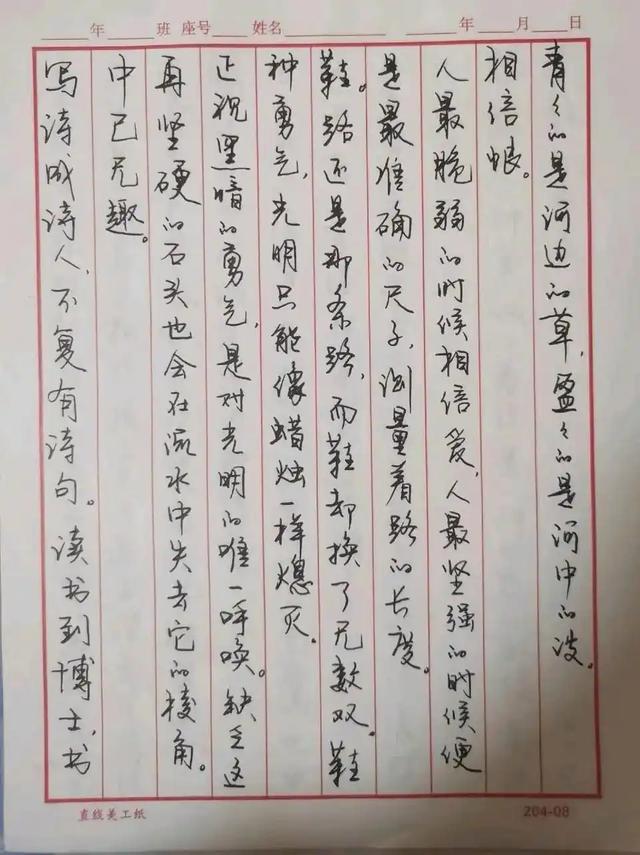 ____年____班 座号____姓名________ ____年____月____日
写诗成诗人,不复有诗句。读书到博士,书
中已无趣。
再坚硬的石头也会在流水中失去它的棱角。
正视黑暗的勇气,是对光明的唯一呼唤。缺乏这
种勇气,光明只能像蜡烛一样熄灭。
鞋。路还是那条路,而鞋却换了无数双。鞋
是最准确的尺子,测量着路的长度。
人最脆弱的时候相信爱,人最坚强的时候便
相信恨。
青々的是河边的草,盈々的是河中的波。
直线美工纸
204-08